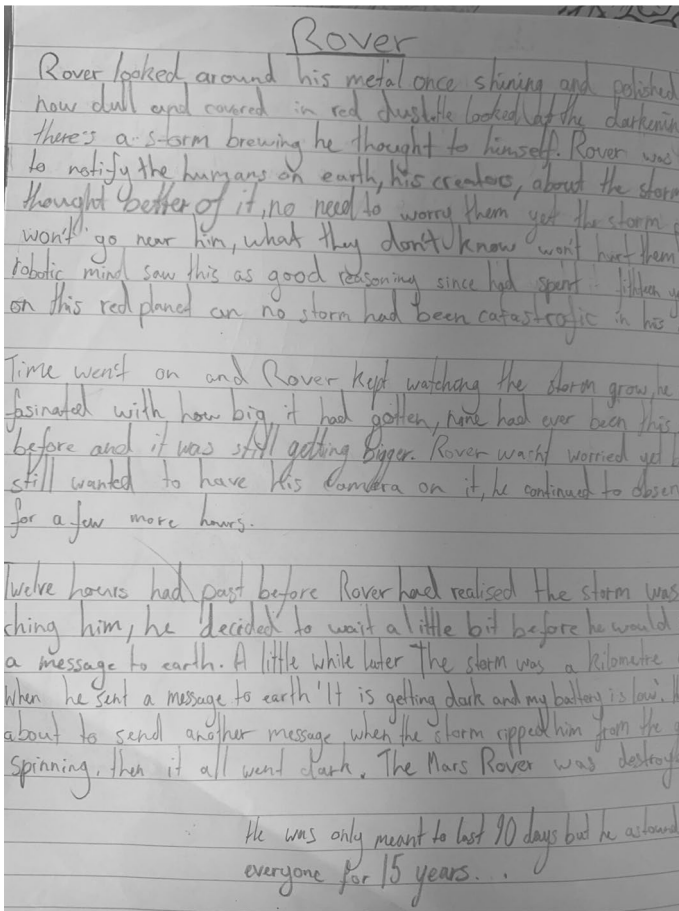 Rover
Rover looked around his metal once shining and polished
now dull and covered in red dust. He looked at the darkenin
there's a storm brewing he thought to himself. Rover was
to notify the humans on earth, his creators, about the storm
thought better of it, no need to worry them yet the storm
won't go near him, what they don't know won't hurt them
robotic mind saw this as good reasoning since had spent fifthteen y
on this red planed an no storm had been catastrofic in his
Time went on and Rover kept watching the storm grow, he
fasinated with how big it had gotten, none had ever been this
before and it was still getting bigger. Rover wasn't worried yet b
still wanted to have his camera on it, he continued to obser
for a few more hours.
Twelve hours had past before Rover had realised the storm was
ching him, he decided to wait a little bit before he would
a message to earth. A little while later the storm was a kilometre
when he sent a message to earth 'It is getting dark and my battery is low'. H
about to send another message when the storm ripped him from the g
spinning, then it all went dark. The Mars Rover was destroy
He was only meant to last 90 days but he astound
everyone for 15 years...